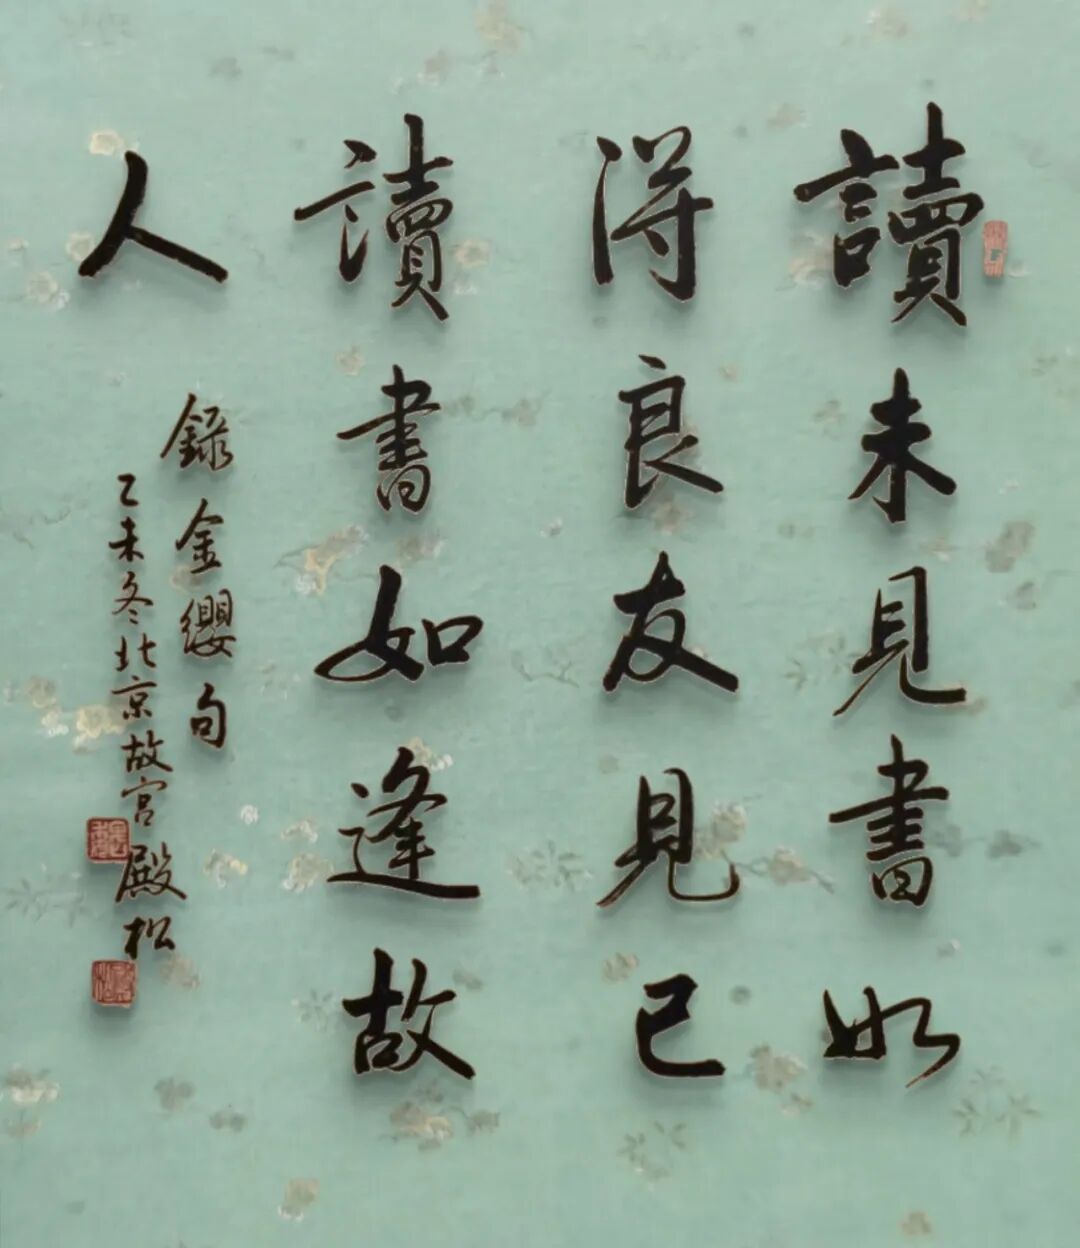 讀未見書如
得良友見已
讀書如逢故
人
錄金纓句
乙未冬北京故宮殿松